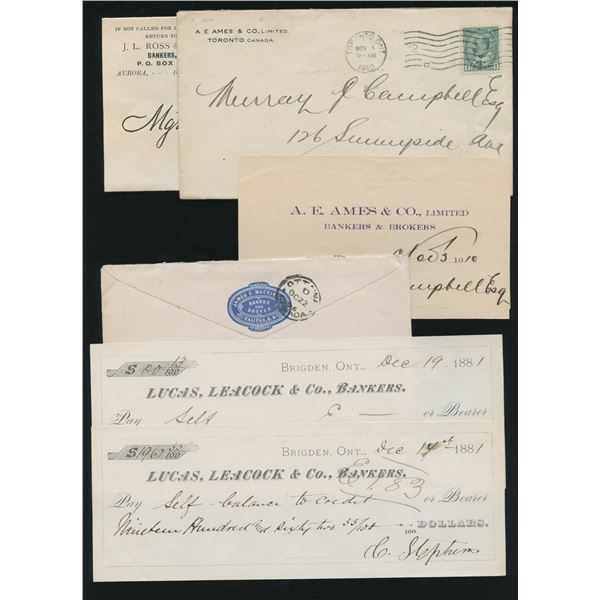 IF NOT CALLED FOR I
RETURN TO
J. L. ROSS &
BANKERS,
P. O. BOX
AURORA, - - - O
Mgr
A. E. AMES & CO., LIMITED,
TORONTO, CANADA.
TORONTO, ONT.
NOV 4
9-AM
1910
Murray J Campbell Esq
126 Sunnyside Ave
A. E. AMES & CO., LIMITED
BANKERS & BROKERS
Nov 3 1910
Campbell Esq
JAMES C. MACKIN
BANKER
AND
BROKER
HALIFAX, N.S.
OTTAWA
OC 22
CANADA
$ 00 13/100
BRIGDEN, ONT., Dec 19 1881
LUCAS, LEACOCK & CO., BANKERS.
Pay Self or Bearer
$ 1962 55/100
BRIGDEN, ONT., Dec 14th 1881
LUCAS, LEACOCK & CO., BANKERS.
E 183
Pay Self balance to credit or Bearer
Nineteen Hundred and sixty two 55/100 /100 DOLLARS.
C. Stephens